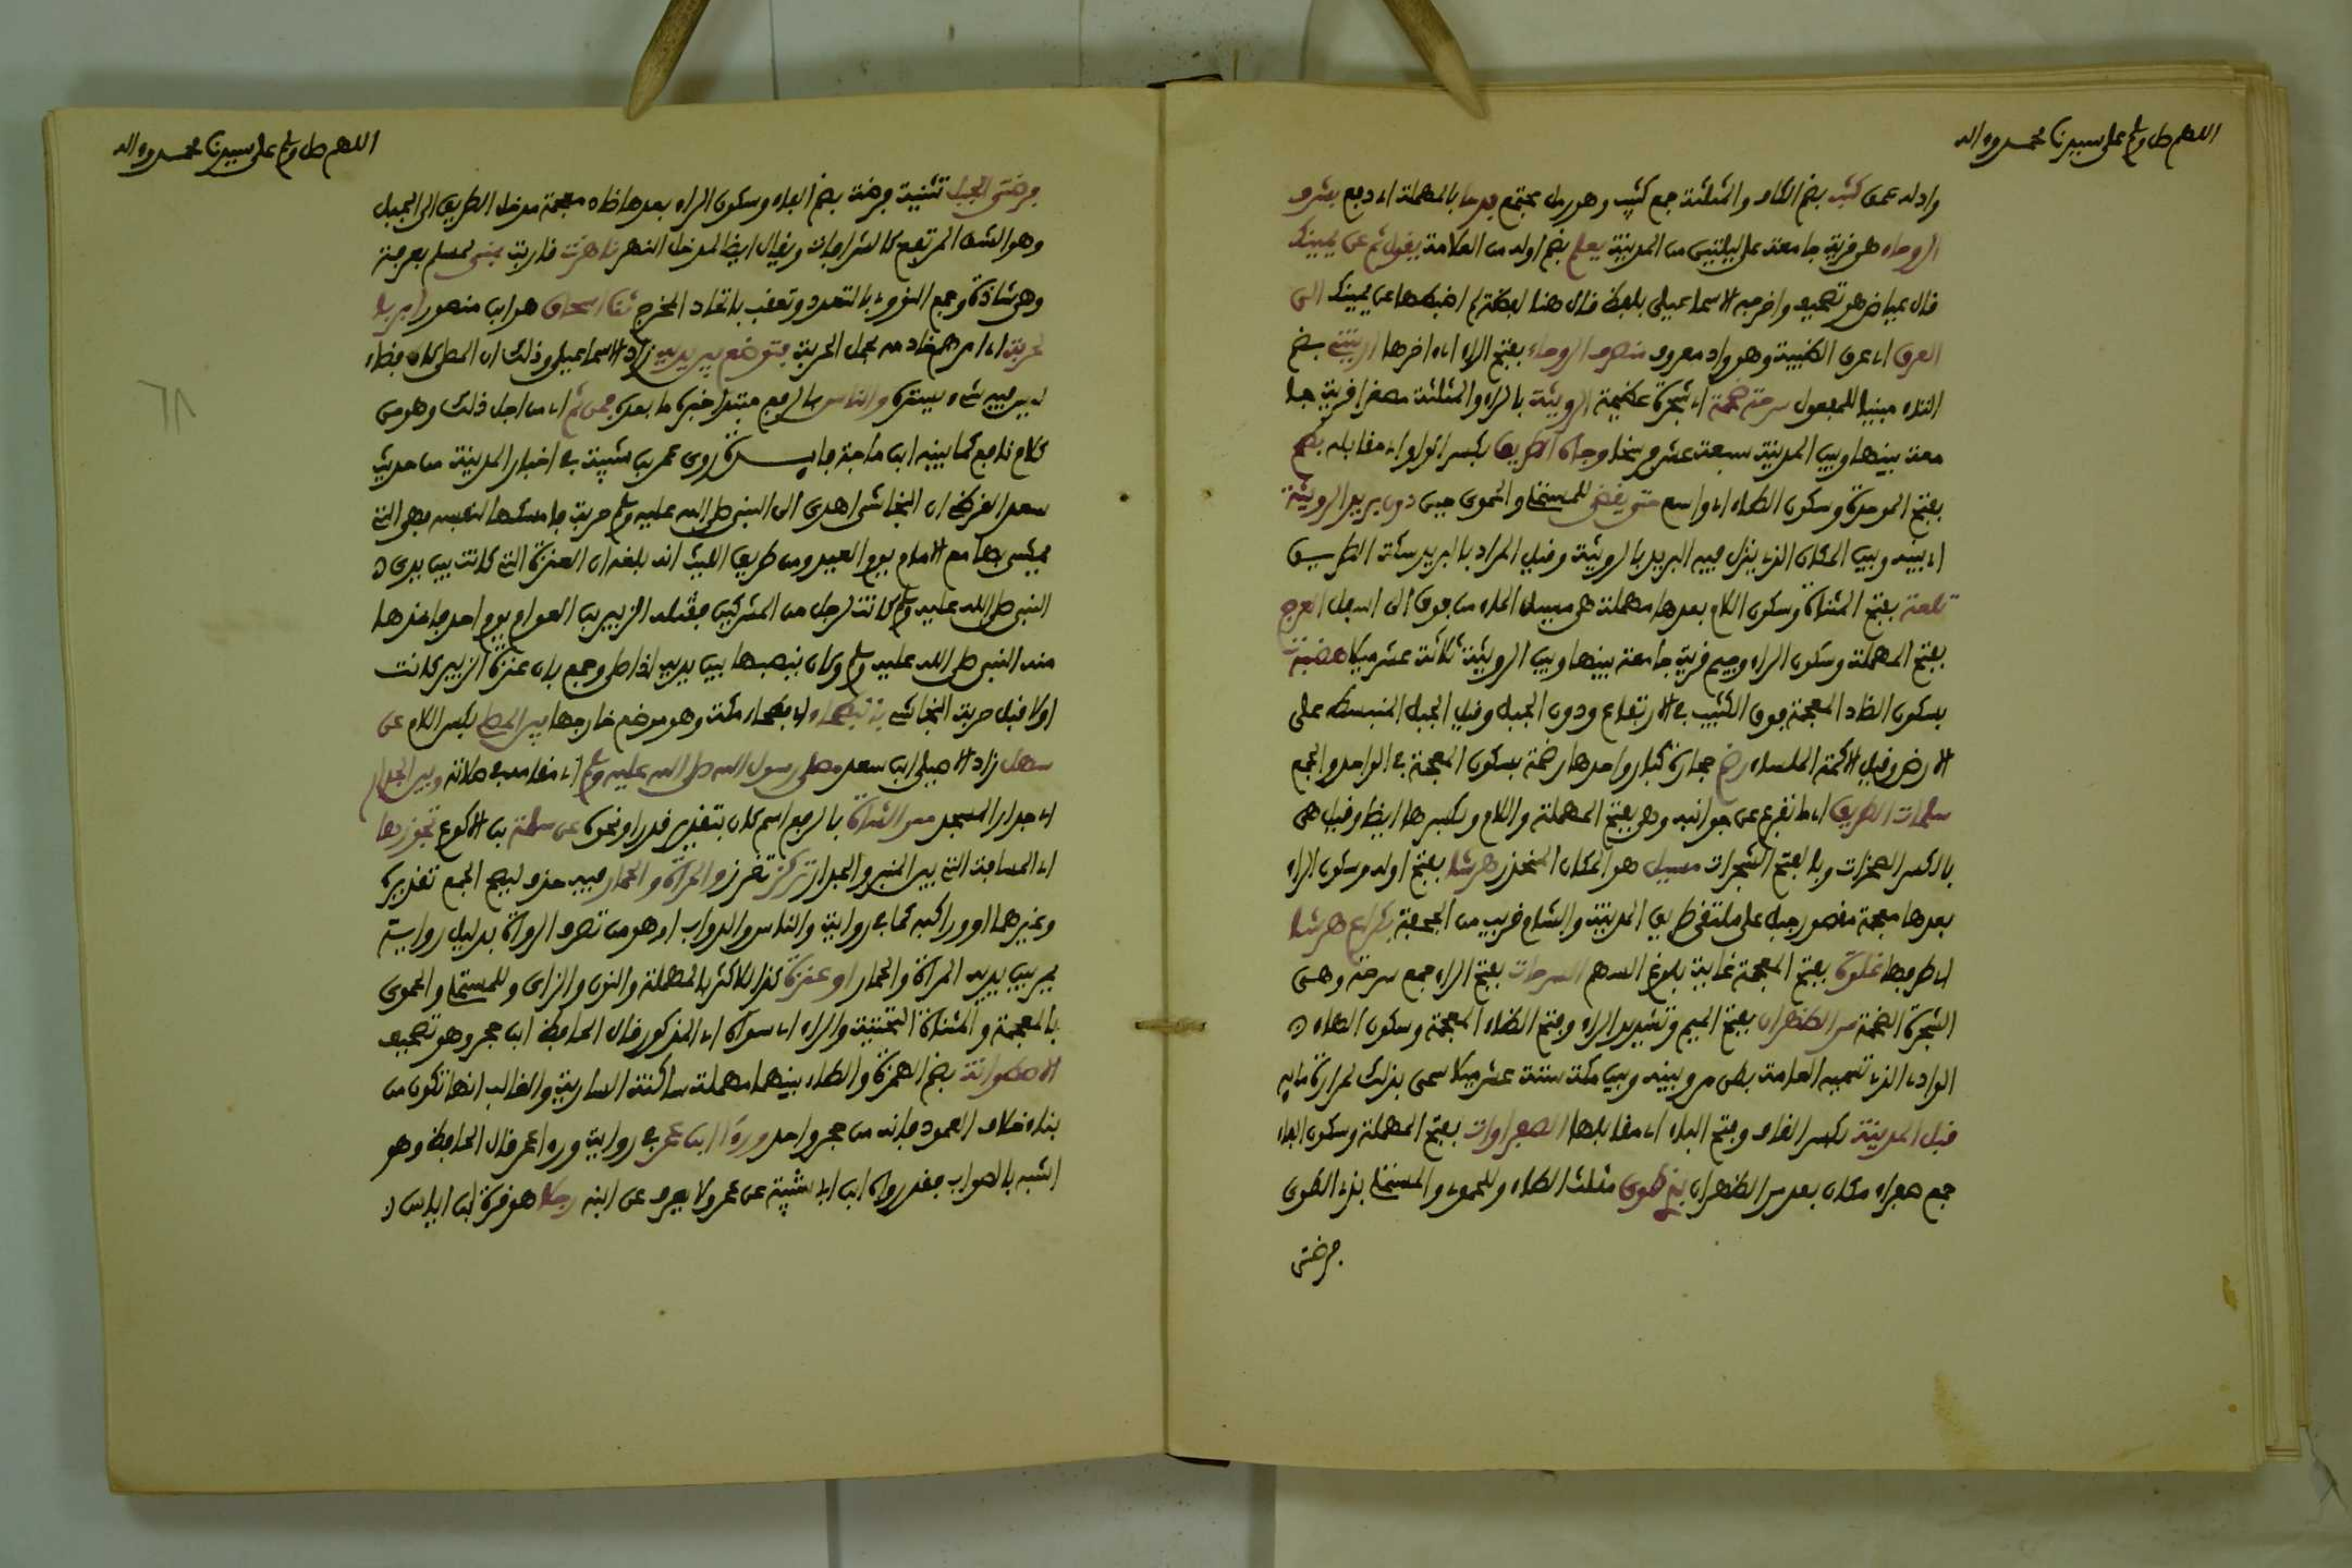 اللهم صل وسلم على سيدنا محمد وءاله
واد له عمق كثب بضم الكاف والمثلثة جمع كثيب وهو رمل مجتمع فدحا بالمهملة اي دفع بشرف
الروحاء هي قرية جامعة على ليلتين من المدينة يعلم بضم اوله من العلامة يقول ثم عن يمينك
قال عياض هو تصحيف واخرجه الاسماعيلي بلفظ قال هنا لفظة لم اضبطها عن يمينك الى
العرق اي عرق الظبية وهو واد معروف منصرف الروحاء بفتح الراء اي اخرها ابتني بضم
التاء مبنيا للمفعول سرحة ضخمة اي شجرة عظيمة الرويثة بالراء والمثلثة مصغرا قرية جا
معة بينها وبين المدينة سبعة عشر فرسخا وجاه الطريق بكسر الواو اي مقابله بطح
بفتح الموحدة وسكون الطاء اي واسع حتى يفضي للمستملي والحموي حين دوين بريد الرويثة
اي بينه وبين المكان الذي ينزل فيه البريد بالرويثة وقيل المراد بالبريد سكة الطريق
تلعة بفتح المثناة وسكون اللام بعدها مهملة هي مسيل الماء من فوق الى اسفل العرج
بفتح المهملة وسكون الراء وجيم قرية جامعة بينها وبين الرويثة ثلاثة عشر ميلا هضبة
بسكون الضاد المعجمة فوق الكثيب في الارتفاع ودون الجبل وقيل الجبل المنبسط على
الارض وقيل الاكمة الملساء رضم حجارة كبار واحدها رضمة بسكون المعجمة في الواحد والجمع
سلمات الطريق اي ما تفرع عن جوانبه وهو بفتح المهملة واللام وبكسرها ايضا وقيل هي
بالكسر الصخرات وبالفتح الشجرات مسيل هو المكان المنحدر هرشا بفتح اوله وسكون الراء
بعدها معجمة مقصور جبل على ملتقى طريق المدينة والشام قريب من الجحفة بكراع هرشا
اي طرفها غلوة بفتح المعجمة غاية بلوغ السهم السرحات بفتح الراء جمع سرحة وهي
الشجرة الضخمة مر الظهران بفتح الميم وتشديد الراء وفتح الظاء المعجمة وسكون الهاء
الوادي الذي تسميه العامة بطن مرو بينه وبين مكة ستة عشر ميلا سمي بذلك لمرارة مائه
قبل المدينة بكسر القاف وفتح الباء اي مقابلها الصفراوات بفتح المهملة وسكون الفاء
جمع صفراء مكان بعد مر الظهران بذي طوى مثلث الطاء وللحموي والمستملي بذي الطوى
فرضتي
اللهم صل وسلم على سيدنا محمد وءاله
فرضتي الجبل تثنية فرضة بضم الفاء وسكون الراء بعدها ضاد معجمة مدخل الطريق الى الجبل
وهو الشق المرتفع كالشرافات ويقال ايضا لمدخل النهر ناهزت قاربت بمنى لمسلم بعرفة
وهي شاذة وجمع النووي بالتعدد وتعقب باتحاد المخرج ثنا اسحاق هو ابن منصور امر با
لحربة اي امر خادمه بحمل الحربة فتوضع بين يديه زاد الاسماعيلي وذلك ان المصلى كان فضاء
ليس فيه شيء يستره والناس بالرفع مبتدا خبره ما بعده فمن ثم اي من اجل ذلك وهو من
كلام نافع كما بينه ابن ماجة فايدة روى عمر بن شبة في اخبار المدينة من حديث
سعد القرظ ان النجاشي اهدى الى النبي صلى الله عليه وسلم حربة فامسكها لنفسه فهي التي
يمشى بها مع الامام يوم العيد ومن طريق الليث انه بلغه ان العنزة التي كانت بين يدي
النبي صلى الله عليه وسلم كانت لرجل من المشركين فقتله الزبير بن العوام يوم احد فاخذها
منه النبي صلى الله عليه وسلم وكان ينصبها بين يديه اذا صلى وجمع بان عنزة الزبير كانت
اولا قبل حربة النجاشي بالبطحاء اي بطحاء مكة وهو موضع خارجها بين المصلى بكسر اللام عن
سهل زاد الاصيلي ابن سعد مصلى رسول الله صلى الله عليه وسلم اي مقامه في صلاته وبين الجدار
اي جدار المسجد ممر الشاة بالرفع اسم كان بتقدير قدر او نحوه عن سلمة بن الاكوع تجوزها
اي المسافة التي بين المنبر والجدار تركز تغرز والمراة والحمار فيه حذف ليصح الجمع تقديره
وغيرهما او وراكبه كما في رواية والناس والدواب او هو من تصرف الرواة بدليل رواية
يمر بين يديه المراة والحمار او عنزة كذا للاكثر بالمهملة والنون والزاى وللمستملي والحموي
بالمعجمة والمثناة التحتية والراء اي سواه اي المذكور قال الحافظ ابن حجر وهو تصحيف
الاسطوانة بضم الهمزة والطاء بينهما مهملة ساكنة السارية والغالب انها تكون من
بناء خلاف العمود فانه من حجر واحد ورءا ابن عمر في رواية ورءا عمر قال الحافظ وهو
اشبه بالصواب فقد رواه ابن ابي شيبة عن عمر ولا يعرف عن ابنه رجلا هو قرة ابن اياس
٦٨